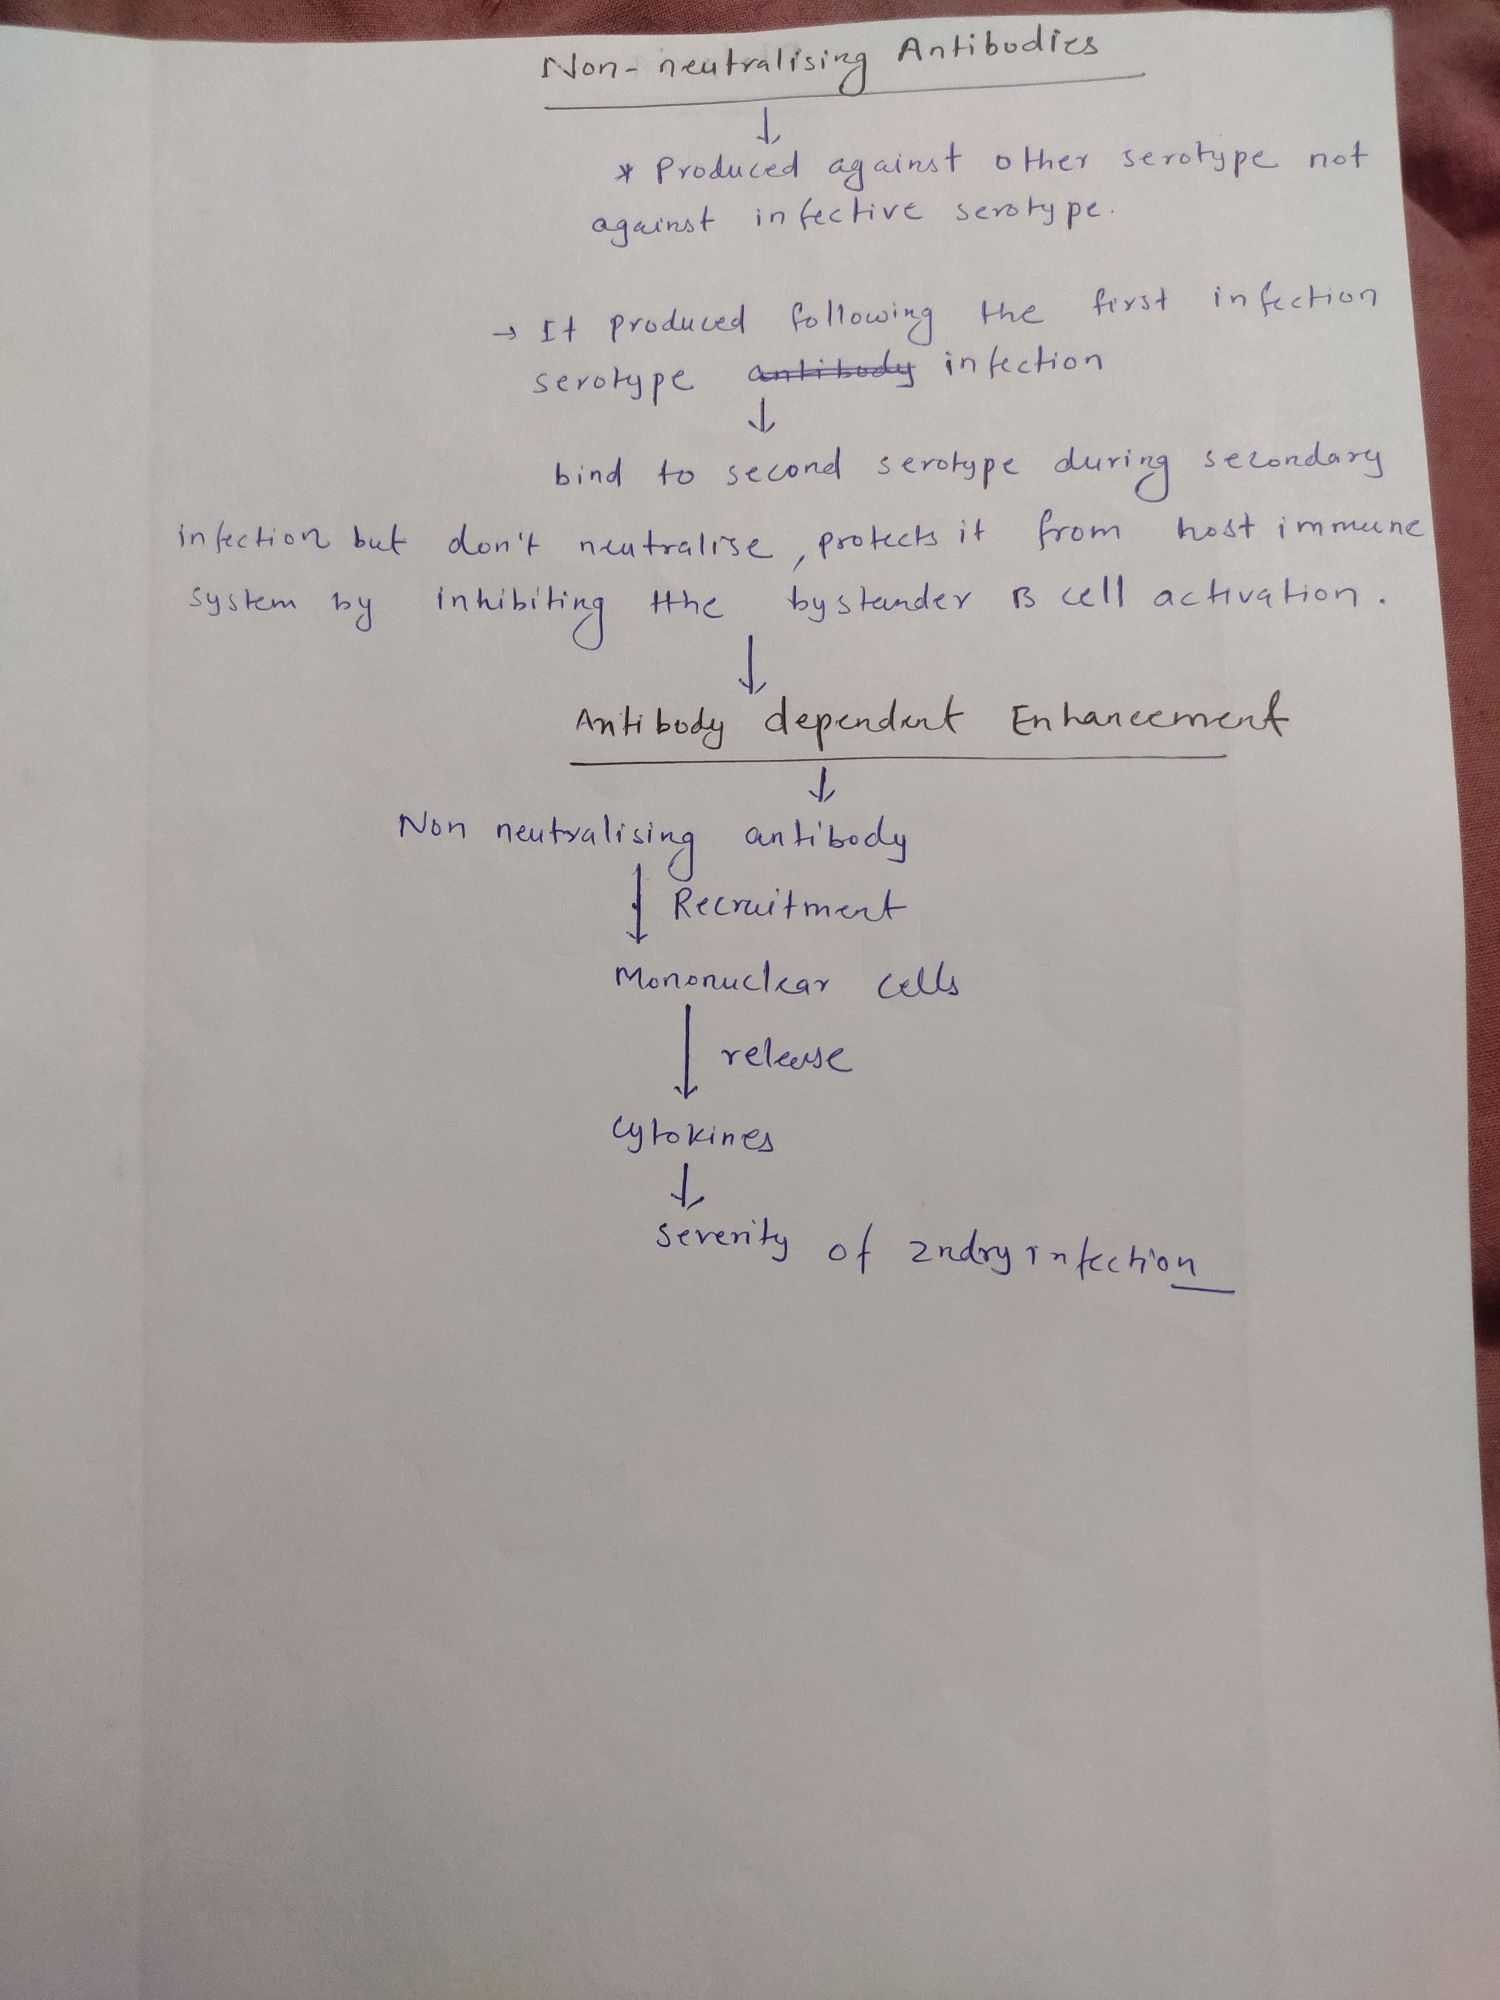 Non-neutralising Antibodies
↓
* Produced against other serotype not
against infective serotype.
→ It produced following the first infection
serotype antibody infection
↓
bind to second serotype during secondary
infection but don't neutralise, protects it from host immune
system by inhibiting the bystander B cell activation.
↓
Antibody dependent Enhancement
↓
Non neutralising antibody
↓ Recruitment
Mononuclear cells
↓ release
Cytokines
↓
Severity of 2ndry infection